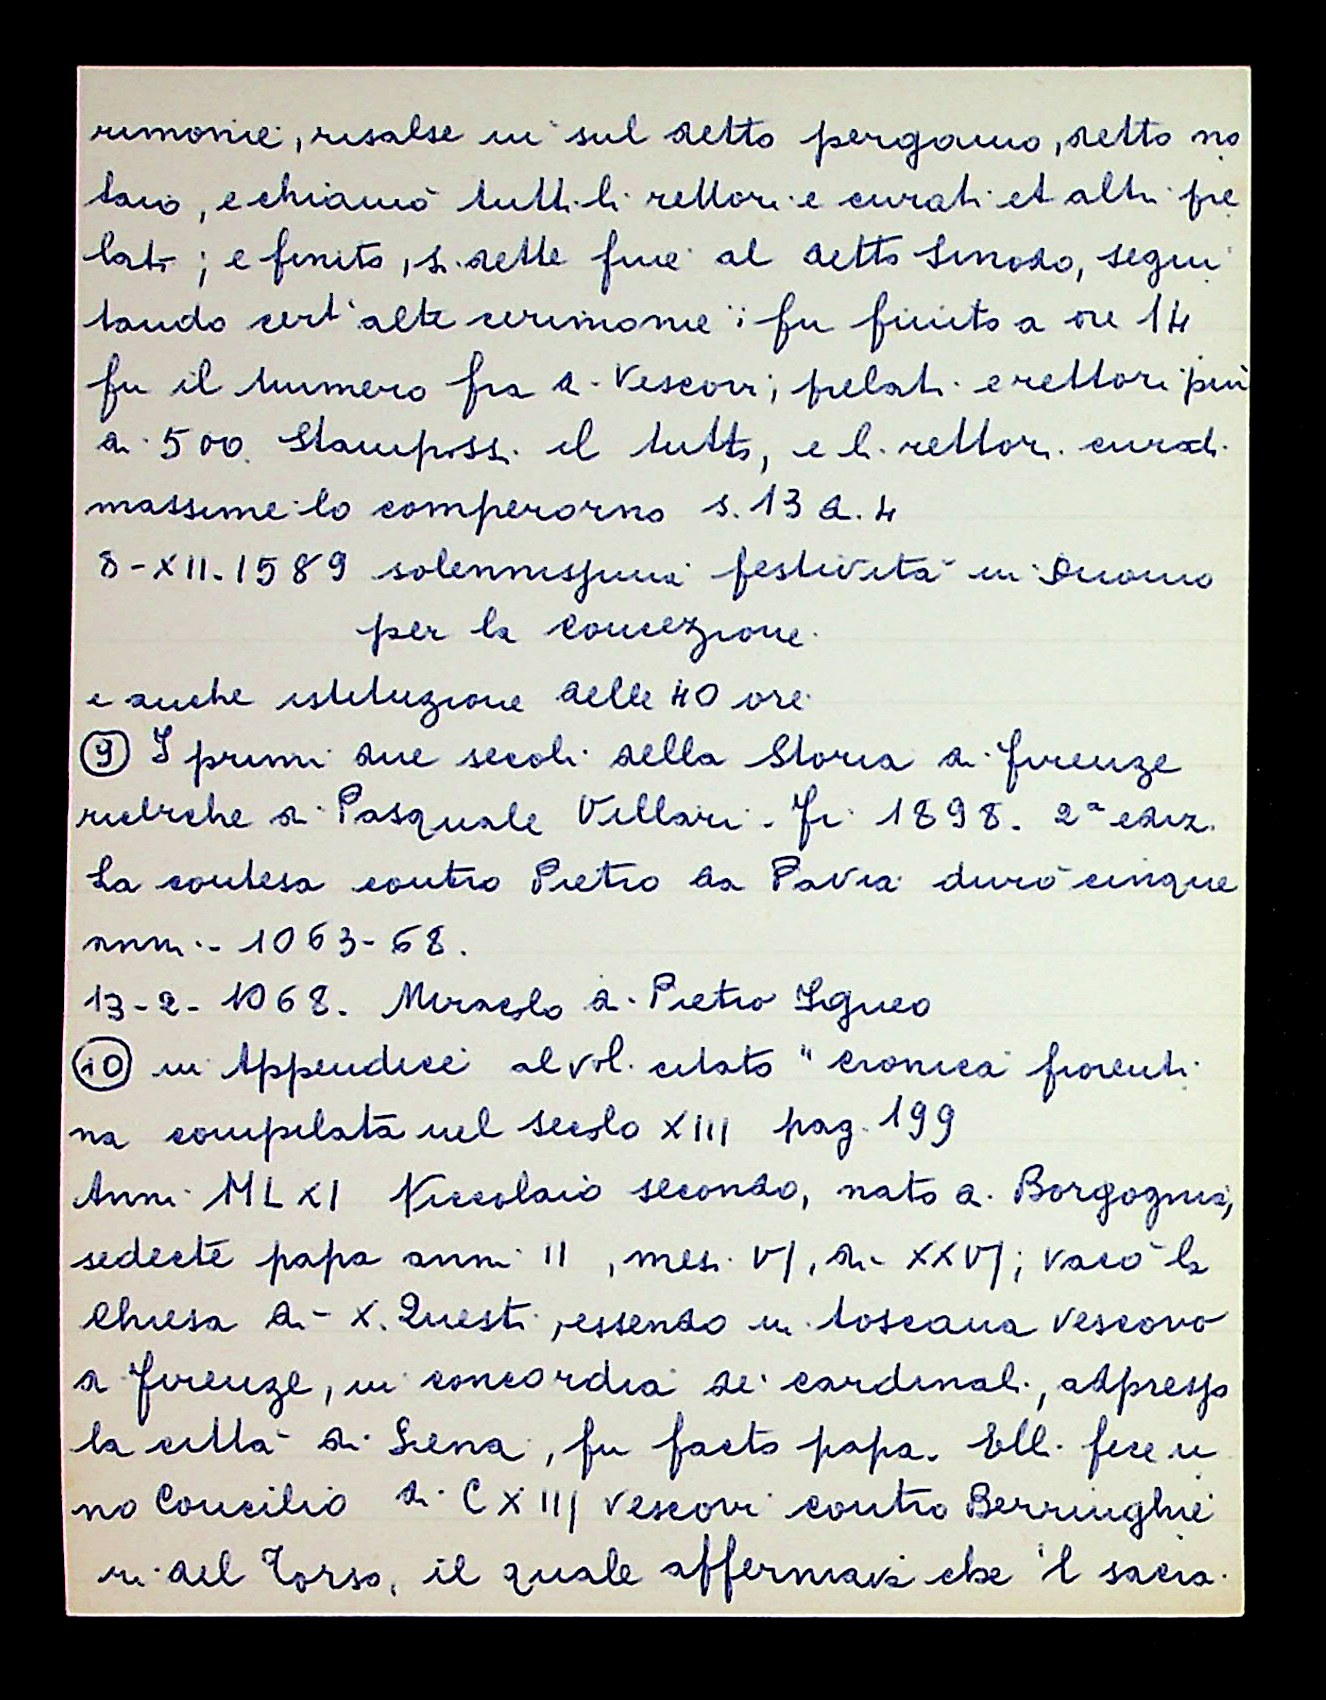 rimonie, risalse in sul detto pergamo, detto no
taio, e chiamò tutti li rettori e curati et altri pre
lati; e finito, si dette fine al detto Sinodo, segui
tando cert'altre cerimonie; fu finito a ore 14
fu il numero fra di Vescovi, prelati e rettori più
di 500. Stampossi il tutto, e li rettori curati
massime lo comperorno s. 13 d. 4
8-XII-1589 solennissima festività in Duomo
per la Concezione.
e anche istituzione delle 40 ore
(9) I primi due secoli della Storia di Firenze
ricerche di Pasquale Villari. Fi 1898. 2ª ediz.
La contesa contro Pietro da Pavia durò cinque
anni - 1063-68.
13-2-1068. Miracolo di Pietro Igneo
(10) in Appendice al vol. citato "Cronica fiorenti
na compilata nel secolo XIII pag. 199
Anni MLXI Niccolaio secondo, nato di Borgogna,
sedecte papa anni II, mesi VI, dì XXVI; vacò la
Chiesa dì X. Questi, essendo in toscana vescovo
di Firenze, in concordia de' cardinali, adpresso
la città di Siena, fu facto papa. Elli fece u
no Concilio di CXIII vescovi contro Berringhie
ri del Torso, il quale affermava che 'l sacra